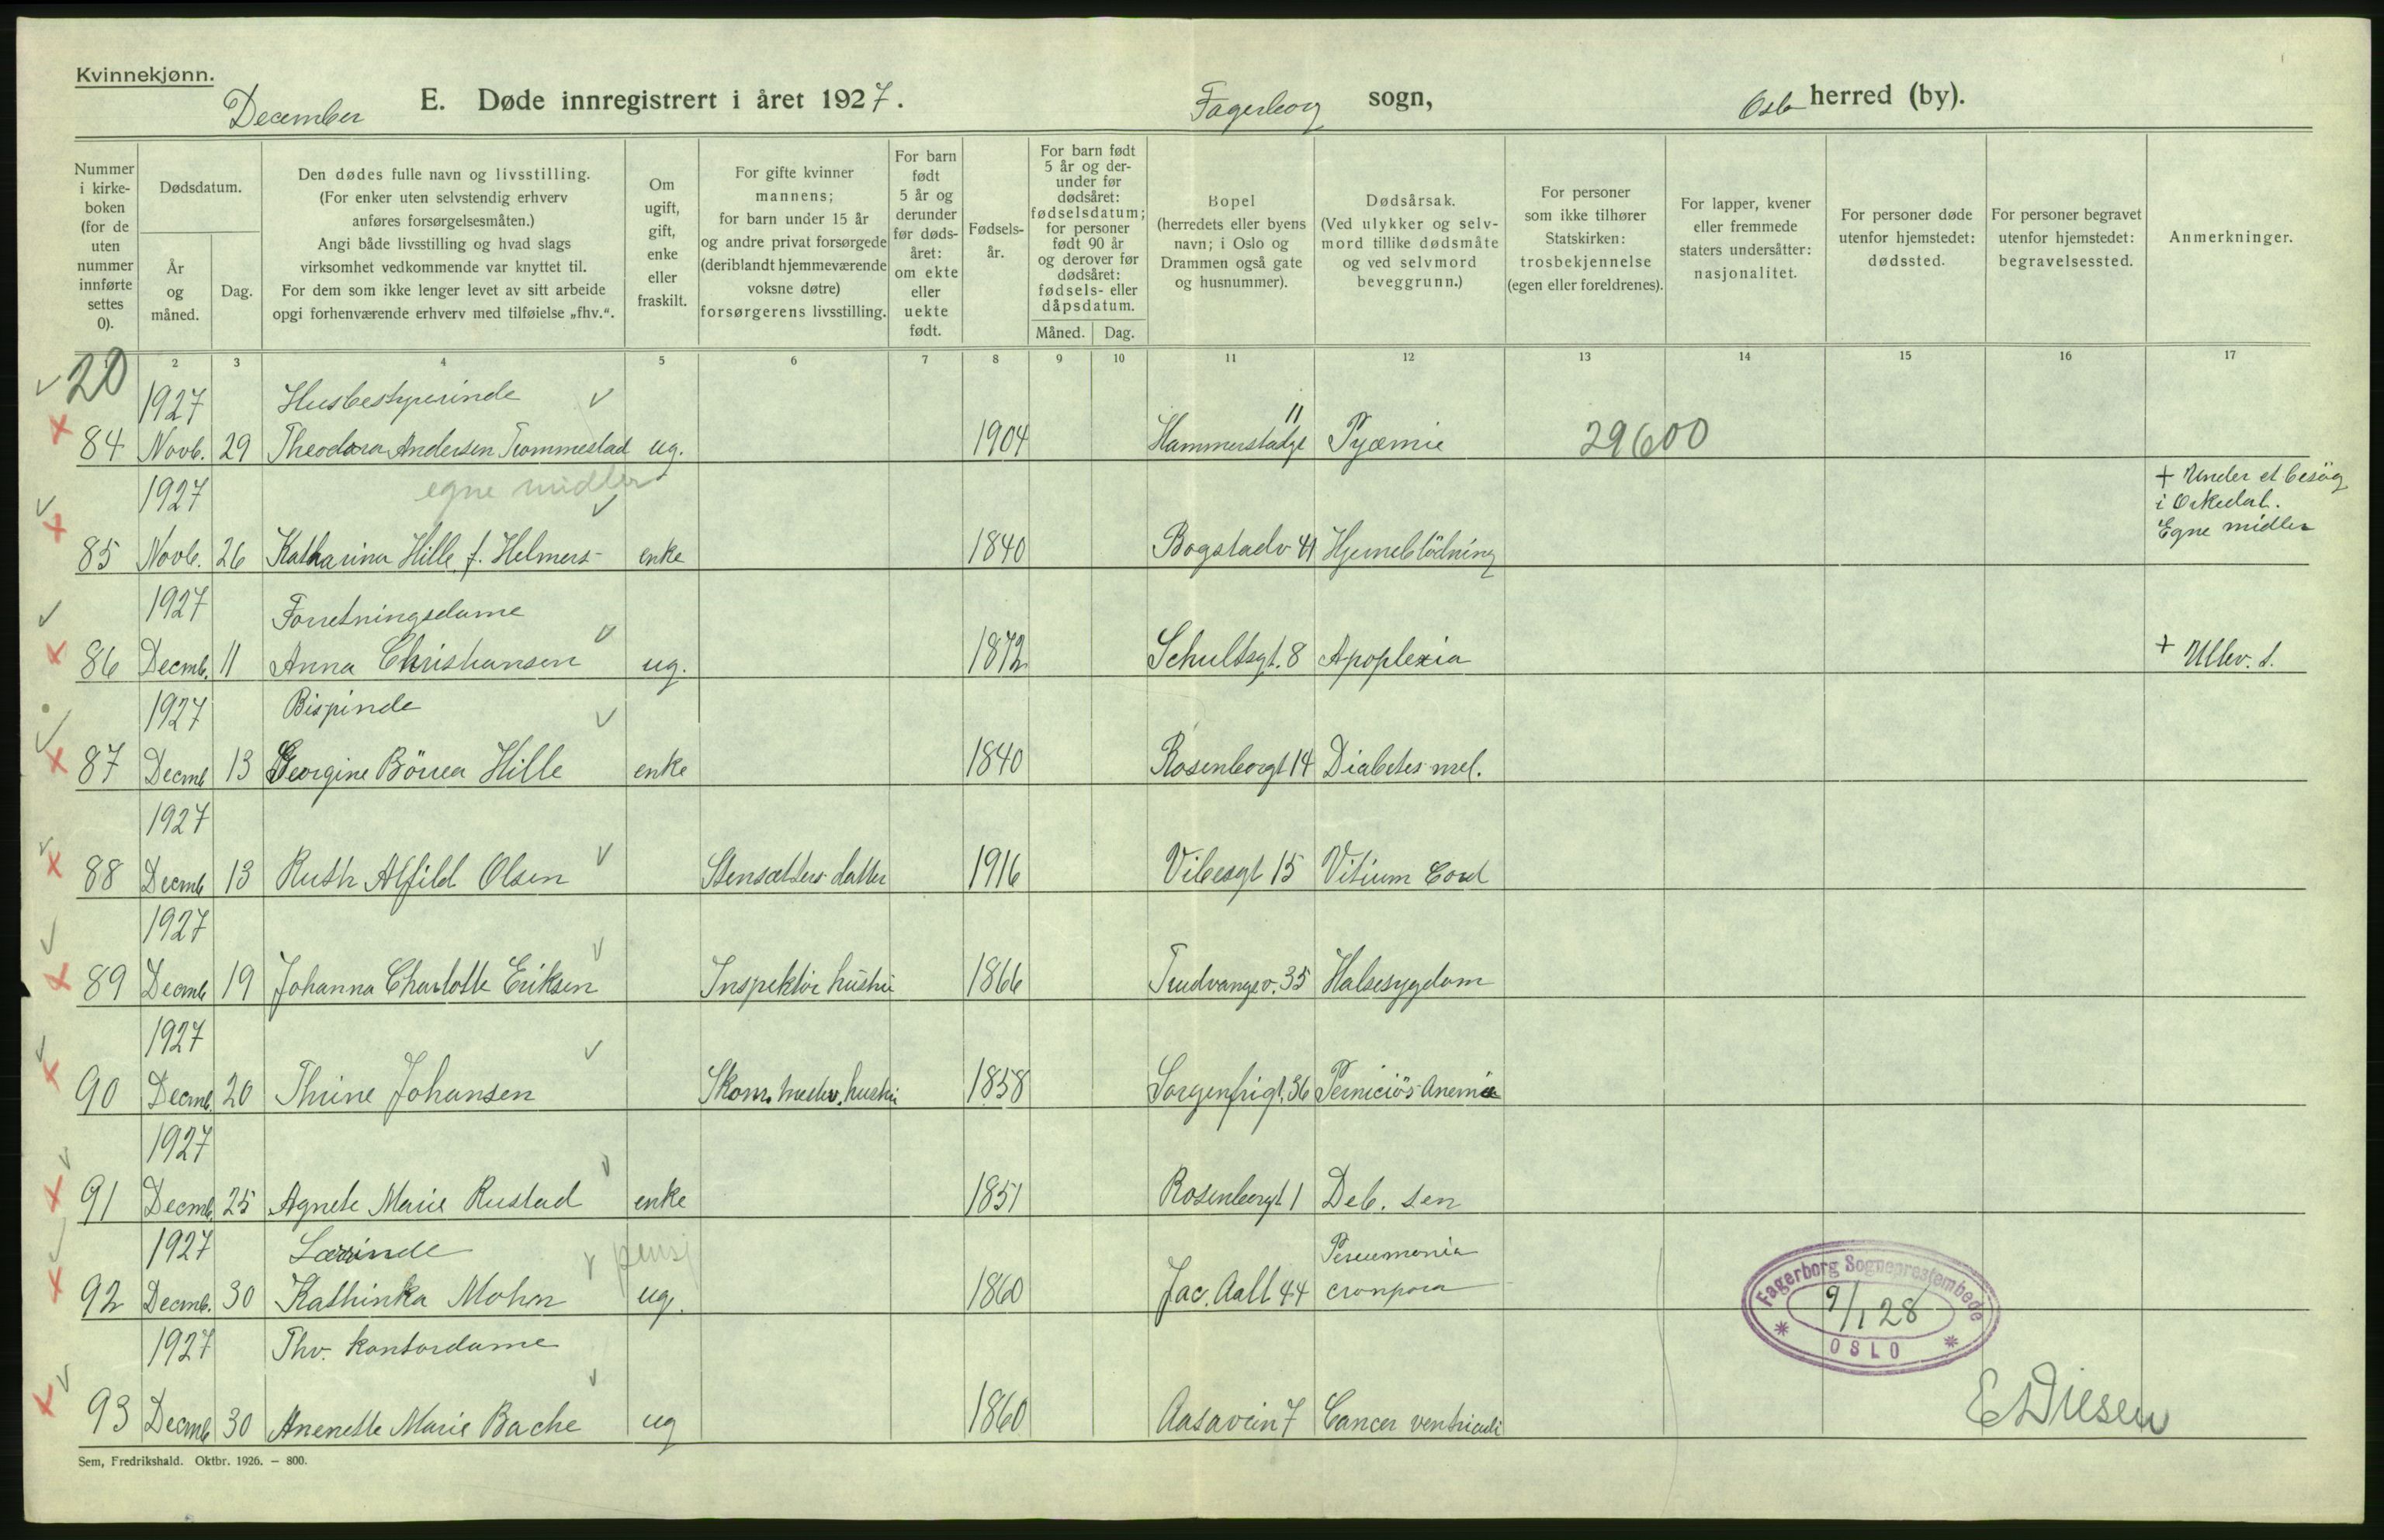 Kvinnekjønn.
December E. Døde innregistrert i året 1927. Fagerborg sogn, Oslo herred (by).
Nummer i kirkeboken (for de uten nummer innførte settes 0).
Dødsdatum.
År og måned.
Dag.
Den dødes fulle navn og livsstilling.
(For enker uten selvstendig erhverv
anføres forsørgelsesmåten.)
Angi både livsstilling og hvad slags
virksomhet vedkommende var knyttet til.
For dem som ikke lenger levet av sitt arbeide
opgi forhenværende erhverv med tilføielse „fhv.“.
Om ugift, gift, enke eller fraskilt.
For gifte kvinner
mannens;
for barn under 15 år
og andre privat forsørgede
(deriblandt hjemmeværende
voksne døtre)
forsørgerens livsstilling.
For barn født 5 år og derunder før dødsåret: om ekte eller uekte født.
Fødselsår.
For barn født 5 år og derunder før dødsåret: fødselsdatum; for personer født 90 år og derover før dødsåret: fødsels- eller dåpsdatum.
Måned. Dag.
Bopel
(herredets eller byens
navn; i Oslo og
Drammen også gate
og husnummer).
Dødsårsak.
(Ved ulykker og selv-
mord tillike dødsmåte
og ved selvmord
beveggrunn.)
For personer
som ikke tilhører
Statskirken:
trosbekjennelse
(egen eller foreldrenes).
For lapper, kvener
eller fremmede
staters undersåtter:
nasjonalitet.
For personer døde
utenfor hjemstedet:
dødssted.
For personer begravet
utenfor hjemstedet:
begravelsessted.
Anmerkninger.
20 2 3 4 5 6 7 8 9 10 11 12 13 14 15 16 17
1927 Husbestyrerinde 11
84 Novb. 29 Theodora Andersen Trommestad ug. 1904 Hammerstadgt Pyæmie 29600
1927 egne midler + Under et besög
i Orkedal.
Egne midler
85 Novb. 26 Katharina Hille f. Helmers enke 1840 Bogstadv 41 Hjerneblödning
1927 Forretningsdame
86 Decmb. 11 Anna Christiansen ug. 1872 Schultsgt. 8 Apoplexia + Ullev. s.
1927 Bispinde
87 Decmb 13 Georgine Börrea Hille enke 1840 Rosenborgt 14 Diabetes mel.
1927
88 Decmb 13 Ruth Alfild Olsen Stensætters datter 1916 Vibesgt 15 Vitium Cord
1927
89 Decmb 19 Johanna Charlotte Eriksen Inspektör hustru 1866 Trudvangsv. 35 Halsesygdom
1927
90 Decmb. 20 Thrine Johansen Skom. mester. hustru 1858 Sorgenfrigt. 36 Perniciös Anemie
1927
91 Decmb. 25 Agnete Marie Rustad enke 1851 Rosenborgt 1 Deb. sen
1927 Lærinde pensj Pneumonia
92 Decmb. 30 Kathinka Mohn ug. 1860 Jac. Aall 44 crouposa
1927 Fhv. kontordame
93 Decmb 30 Anenette Marie Bache ug 1860 Aasavein 7 Cancer ventriculi
Fagerborg Sogneprestembede
9/1 28
OSLO
E Diesen
Sem, Fredrikshald. Oktbr. 1926. – 800.